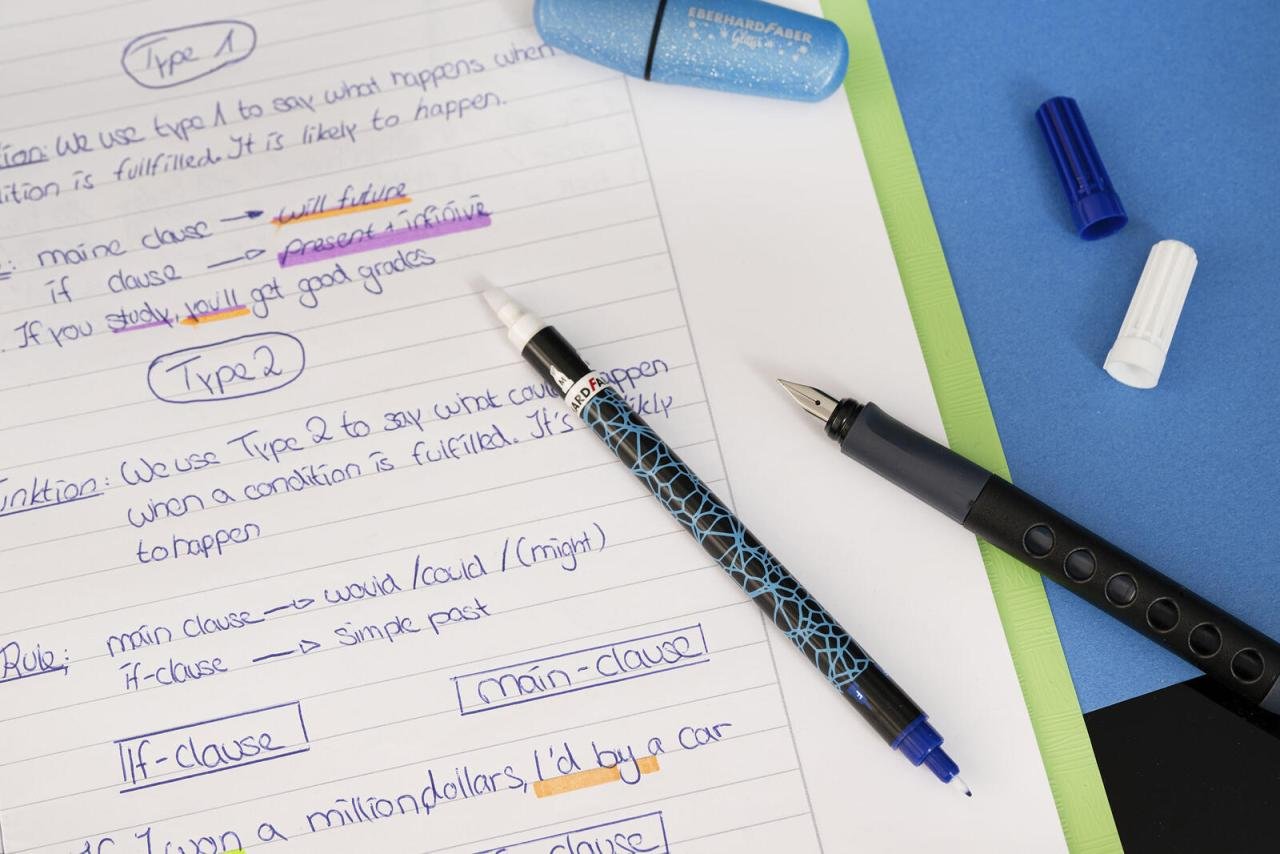 Type 1
EBERHARD FABER
Glitter
tion: We use type 1 to say what happens when
dition is fullfilled. It is likely to happen.
maine clause → will future
if clause → present + infinive
If you study, you'll get good grades
Type 2
unktion: We use Type 2 to say what could happen
when a condition is fulfilled. It's likly
to happen
Rule: main clause → would /could /(might)
if-clause → simple past
main-clause
If-clause
If I won a million dollars, I'd by a car
clause